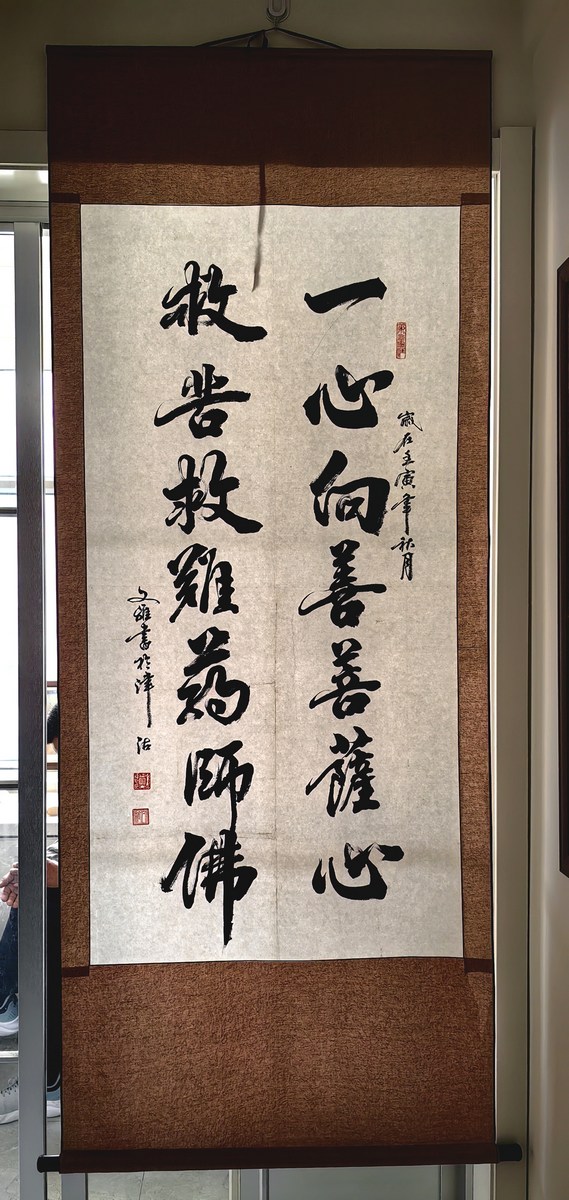 歲在壬寅年秋月
一心向善菩薩心
救苦救難藥師佛
文雄書於津沽